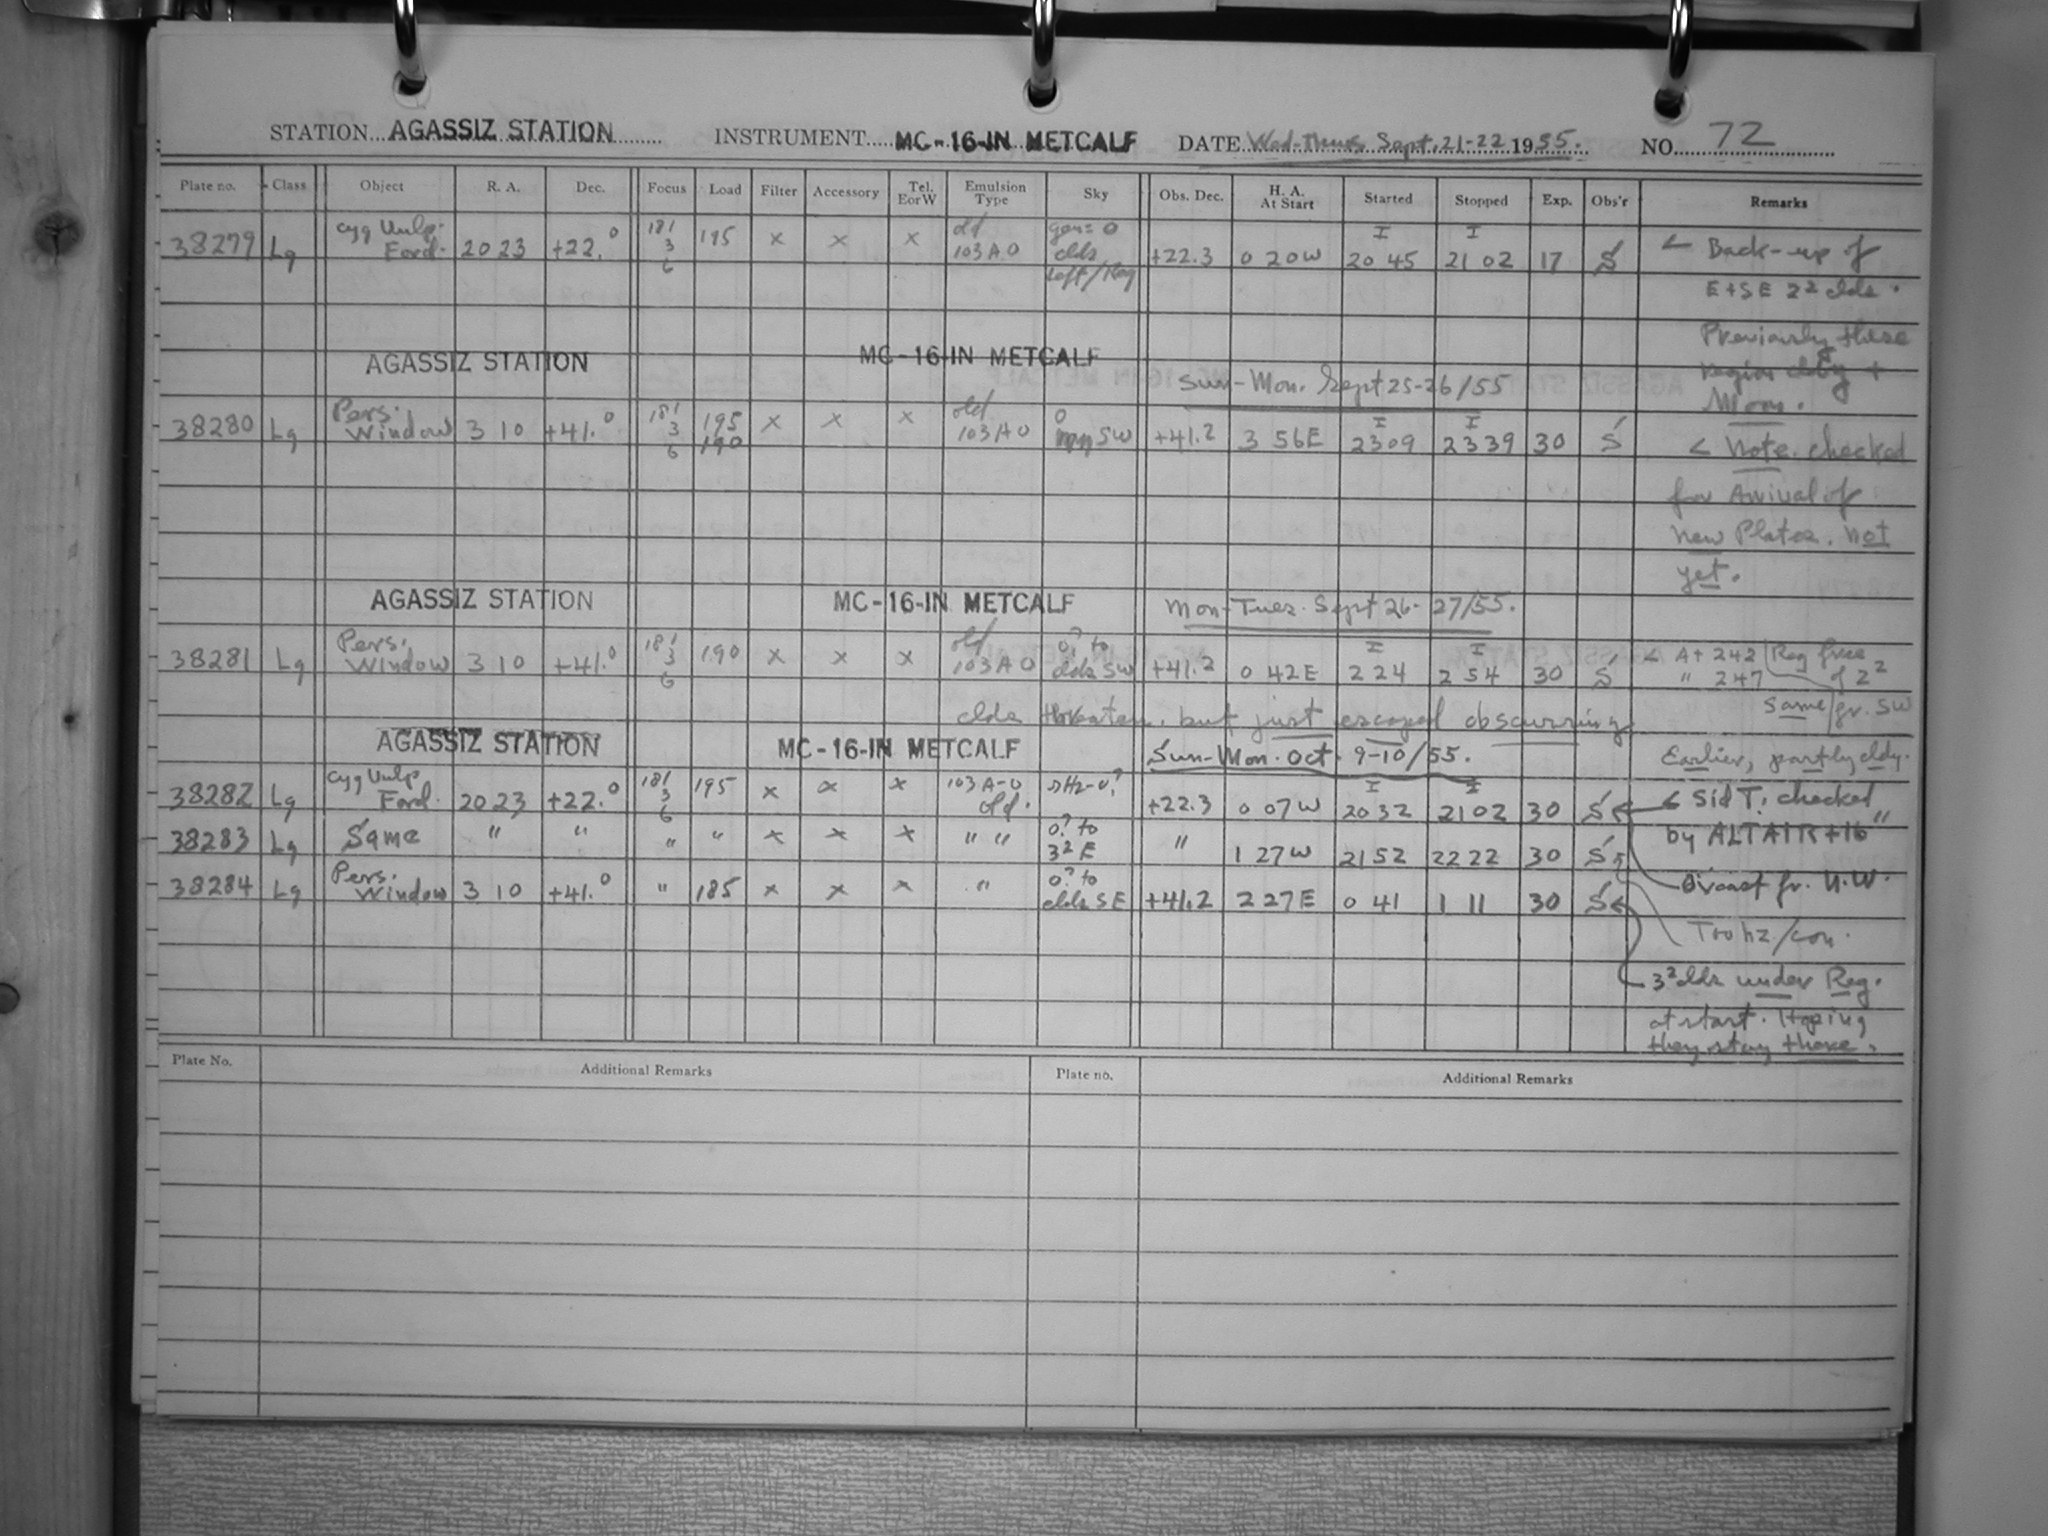 STATION AGASSIZ STATION INSTRUMENT MC-16-IN METCALF DATE Wed-Thurs Sept. 21-22 1955. NO. 72
Plate no. Class Object R. A. Dec. Focus Load Filter Accessory Tel. E or W Emulsion Type Sky Obs. Dec. H. A. At Start Started Stopped Exp. Obs'r Remarks
38279 Lg Cyg Vulp. Ford. 20 23 +22.0 181 3 6 195 x x x old 103 A O clds +22.3 0 20 W I 20 45 I 21 02 17 S < Back-up of
E+SE 2² clds.
Previously these
region cldy +
Moon.
AGASSIZ STATION MC-16-IN METCALF Sun-Mon. Sept 25-26/55
38280 Lg Pers. Window 3 10 +41.0 181 3 6 195 190 x x x old 103 A O 0 SW +41.2 3 56 E I 23 09 I 23 39 30 S < Note. checked
for Arrival of
new Plates. not
yet.
AGASSIZ STATION MC-16-IN METCALF Mon-Tues. Sept 26-27/55.
38281 Lg Pers. Window 3 10 +41.0 181 3 6 190 x x x old 103 A O 0? to clds SW +41.2 0 42 E I 2 24 I 2 54 30 S < At 242 Reg free
" 247 of 2²
Same fr. SW
clds threaten, but just escaped obscuring
AGASSIZ STATION MC-16-IN METCALF Sun-Mon. Oct. 9-10/55. Earlier, partly cldy.
38282 Lg Cyg Vulp Ford. 20 23 +22.0 181 3 6 195 x x x 103 A-O old. sHz-0? +22.3 0 07 W I 20 32 I 21 02 30 S Sid T. checked
by ALTAIR +16"
38283 Lg Same " " " " x x x " " 0? to 3² E " 1 27 W 21 52 22 22 30 S
38284 Lg Pers. Window 3 10 +41.0 " 185 x x x " 0? to clds SE +41.2 2 27 E 0 41 1 11 30 S Ovcast fr. N.W.
Too hz/con.
3² clds under Reg.
at start. Hoping
they stay there.
Plate No. Additional Remarks Plate no. Additional Remarks